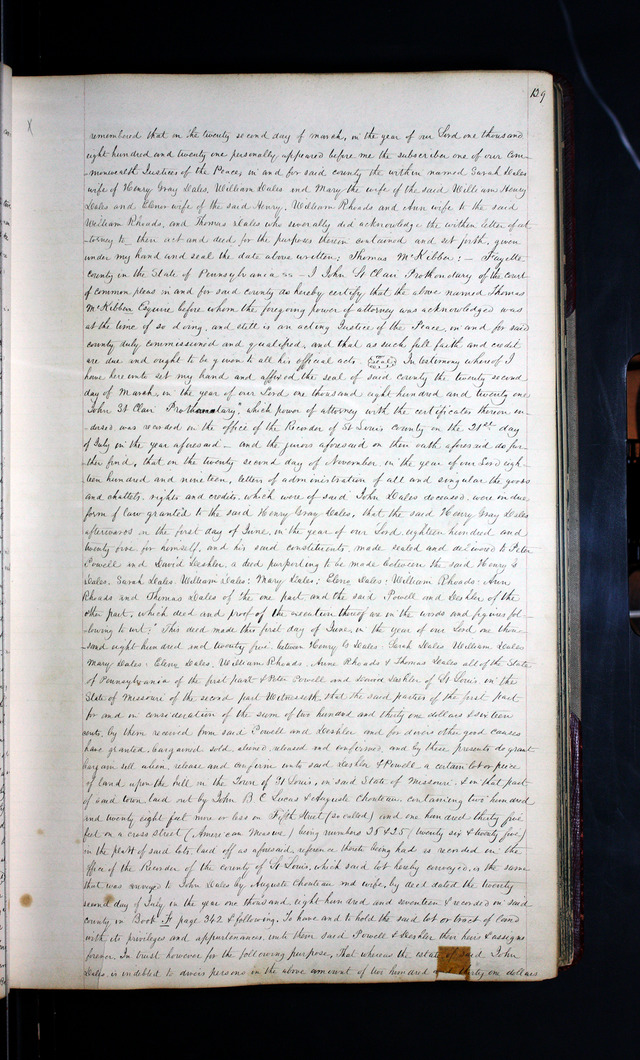 139
X
remembered that on the twenty second day of march, in the year of our Lord one thousand
eight hundred and twenty one personally appeared before me the subscriber one of our Com-
monwealth Justices of the Peace, in and for said county the within named Sarah Dales
wife of Henry Gray Dales, William Dales and Mary the wife of the said William Henry
Dales and Elenor wife of the said Henry, William Rhoads and Ann wife to the said
William Rhoads, and Thomas Dales who severally did acknowledge the within letter of at-
torney to their act and deed for the purposes therein contained and set forth, given
under my hand and seal the date above written; Thomas McKibben: — Fayette
County in the State of Pennsylvania ss — I John St Clair Prothonotary of the Court
of common pleas in and for said county do hereby certify that the above named Thomas
McKibben Esquire before whom the foregoing power of attorney was acknowledged was
at the time of so doing, and still is an acting Justice of the Peace, in and for said
county duly commissioned and qualified, and that as such full faith and credit
are due and ought to be given to all his official acts. Seal In testimony whereof I
have hereunto set my hand and affixed the seal of said county the twenty second
day of March, in the year of our Lord one thousand eight hundred and twenty one
John St Clair Prothonotary", which power of attorney with the certificates thereon en-
dorsed was recorded in the office of the Recorder of St Louis County on the 21st day
of July in the year aforesaid — and the jurors aforesaid on their oath aforesaid do fur-
ther find, that on the twenty second day of November in the year of our Lord eigh-
teen hundred and nineteen, letters of administration of all and singular the goods
and chattels, rights and credits, which were of said John Dales deceased, were in due
form of law granted to the said Henry Gray Dales, that the said Henry Gray Dales
afterwards on the first day of June, in the year of our Lord eighteen hundred and
twenty five for himself, and his said constituents, made sealed and delivered to Peter
Powell and David Deshler, a deed purporting to be made between the said Henry G
Dales. Sarah Dales. William Dales: Mary Dales: Elenor Dales: William Rhoads: Ann
Rhoads and Thomas Dales of the one part, and the said Powell and Deshler of the
other part, which deed and proof of the execution thereof are in the words and figures fol-
lowing to wit: "This deed made this first day of June, in the year of our Lord one thou-
sand eight hundred and twenty five between Henry G Dales. Sarah Dales William Dales
Mary Dales: Elenor Dales, William Rhoads: Anne Rhoads & Thomas Dales all of the State
of Pennsylvania of the first part & Peter Powell and David Deshler of St Louis, in the
State of Missouri of the second part Witnesseth, that the said parties of the first part
for and in consideration of the sum of two hundred and thirty one dollars & sixteen
cents, by them received from said Powell and Deshler and for divers other good causes
have granted, bargained sold aliened, released and confirmed, and by these presents do grant
bargain sell alien, release and confirm unto said Deshler & Powell a certain lot or piece
of land upon the hill in the Town of St Louis, in said State of Missouri, & in that part
of said town laid out by John B. C Lucas & Auguste Chouteau. containing two hundred
and twenty eight feet more or less on Fifth Street (so called) and one hundred thirty five
feet on a cross street (American Measure) being numbers 26 & 25 (twenty six & twenty five)
in the platt of said lots laid off as aforesaid, reference thereto being had as recorded in the
office of the Recorder of the county of St Louis, which said lot hereby conveyed, is the same
that was conveyed to John Dales by Auguste Chouteau and wife, by deed dated the twenty
second day of July in the year one thousand eight hundred and seventeen & recorded in said
county in Book F page 342 & following. To have and to hold the said lot or tract of land
with its privileges and appurtenances, unto them said Powell & Deshler their heirs & assigns
forever. In trust however for the following purpose, That whereas the estate of said John
Dales, is indebted to divers persons in the above amount of two hundred and thirty one dollars